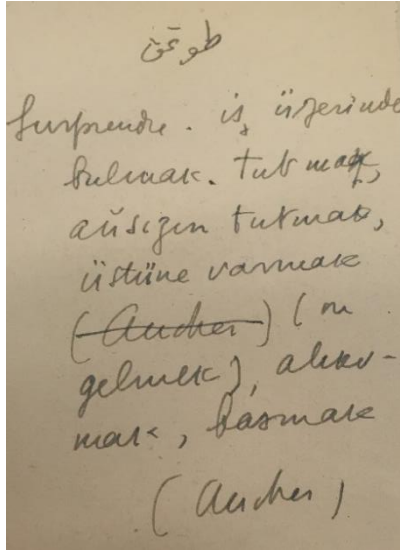 طوتمق
Surprendre. iş üzerinde
bulmak. tutmak,
añsızın tutmak,
üstüne varmak
(Aucher) (
gelmek), alıko-
mak, basmak
(Aucher)